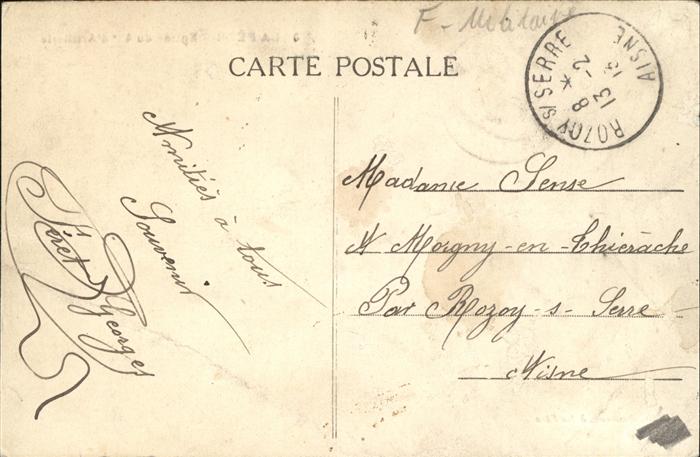 F - Militaire
CARTE POSTALE
ROZOY S/ SERRE
AISNE
8 *
13 - 2
13
Amitiés à tous
Souvenir
Féret Georges
Madame Sense
A Morgny-en-Thiérache
Par Rozoy-s-Serre
Aisne